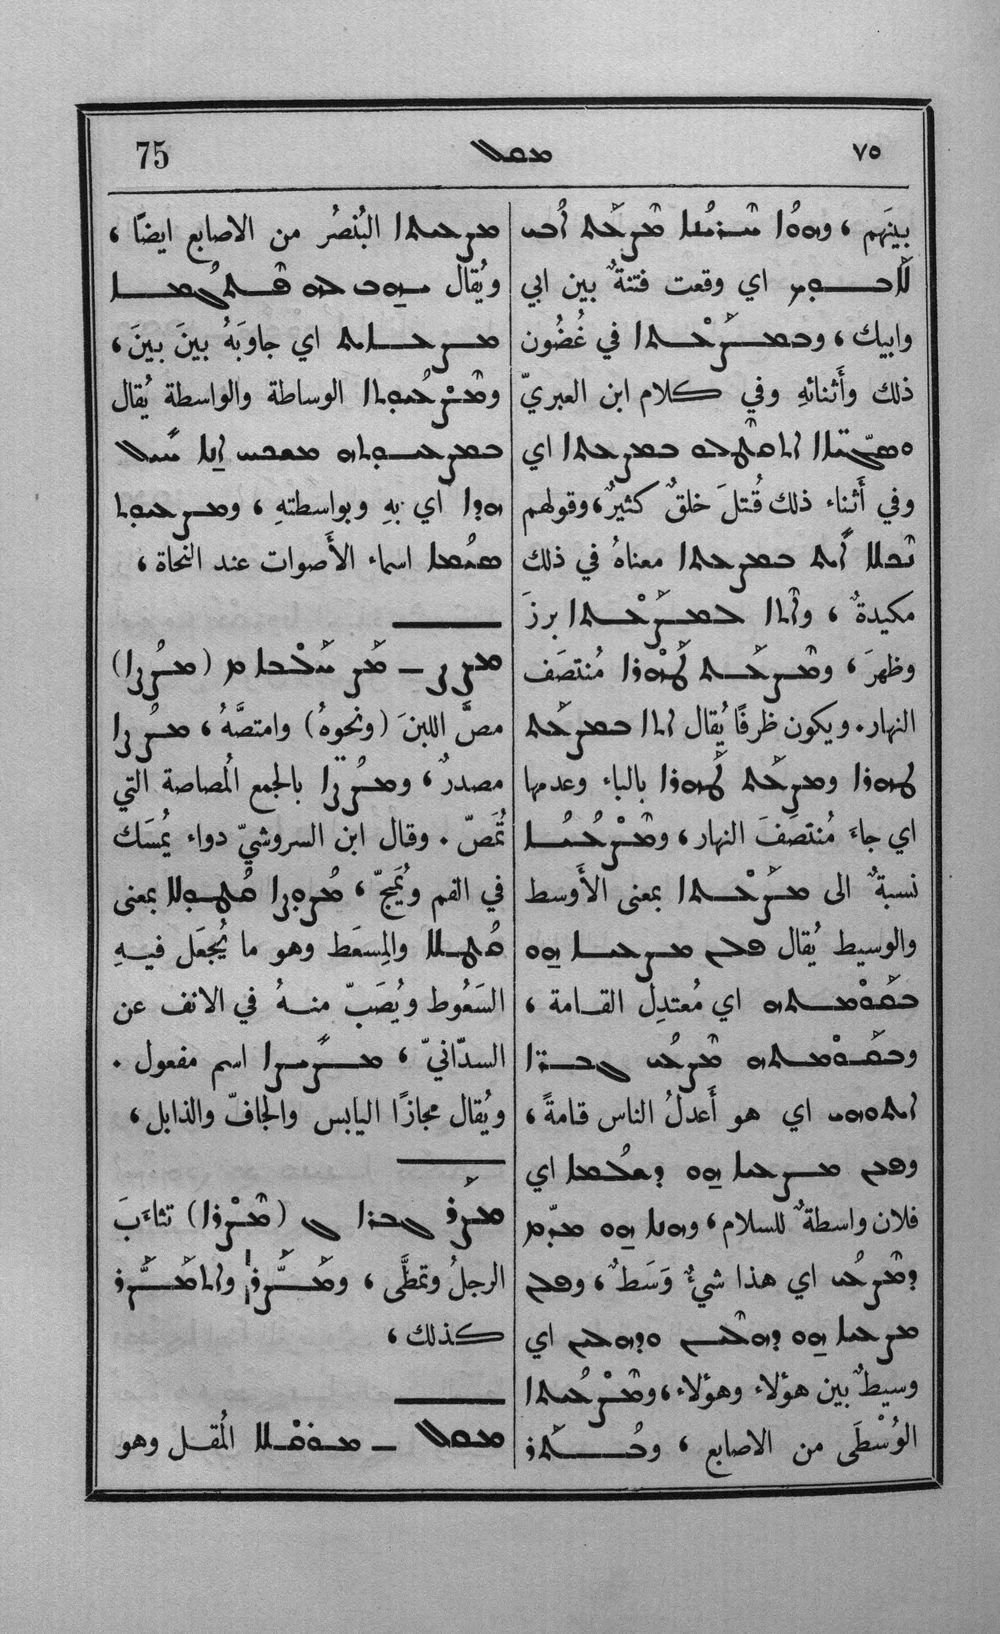 ٧٥ ܡܩܠ 75
بينَهم ، ܘܗܘܐ ܚܪܝܢܐ ܡܨܥܬ ܐܒܝ
ܠܐܒܘܟ اي وقعت فتنةٌ بين ابي
وابيك ، ܘܒܡܨܥܬܐ في غُضُون
ذلك وأَثنائهِ وفي كلام ابن العبريّ
ܘܣܓܝܐܐ ܐܬܩܛܠܘ ܒܡܨܥܬܐ اي
وفي أَثناء ذلك قُتلَ خلقٌ كثيرٌ ، وقولهم
ܢܟܠܐ ܐܝܬ ܒܡܨܥܬܐ معناهُ في ذلك
مكيدةٌ ، ܘܐܬܐ ܠܡܨܥܬܐ برزَ
وظهرَ ، ܘܡܨܥܬ ܛܗܪܐ مُنتصَف
النهار . ويكون ظرفًا يُقال ܐܬܐ ܒܡܨܥܬ
ܛܗܪܐ ܘܡܨܥܬ ܛܗܪܐ بالباء وعدمها
اي جاءَ مُنتصَفَ النهار ، ܘܡܨܥܝܐ
نسبةٌ الى ܡܨܥܬܐ بمعنى الأَوسط
والوسيط يُقال ܦܠܢ ܡܨܥܝܐ ܗܘ
ܒܩܘܡܬܗ اي مُعتدِل القامة ،
ܘܒܩܘܡܬܗ ܡܨܥܝ ܓܒܪܐ
ܐܝܬܘܗܝ اي هو أَعدلُ الناس قامةً ،
ܘܦܠܢ ܡܨܥܝܐ ܗܘ ܕܫܠܡܐ اي
فلان واسطةٌ للسلام ، ܘܗܢܐ ܗܘ ܡܕܡ
ܕܡܨܥܝ اي هذا شيءٌ وَسَطٌ ، ܘܦܠܢ
ܡܨܥܝܐ ܗܘ ܕܗܠܝܢ ܘܕܗܠܝܢ اي
وسيطٌ بين هؤلاء وهؤلاء ، ܘܡܨܥܝܬܐ
الوُسْطَى من الاصابع ، ܘܒܬܪ
ܡܨܥܝܬܐ البُنصُر من الاصابع ايضًا ،
ويُقال ܝܗܒ ܠܗ ܦܬܓܡܐ
ܡܨܥܐܝܬ اي جاوَبَهُ بينَ بينَ ،
ܘܡܨܥܝܘܬܐ الوساطة والواسطة يُقال
ܒܡܨܥܝܘܬܗ
ܗܕܐ اي بهِ وبواسطتهِ ، ܘܡܨܥܝܘܬ
ܫܡܗܐ اسماء الأَصوات عند النحاة ،
ܡܨܨ ــ ܡܨ ܚܠܒܐ ܡ (ܡܨܨܐ)
مصَّ اللبنَ (ونحوهُ) وامتصَّهُ ، ܡܨܨܐ
مصدرٌ ، ܘܡܨܨܐ بالجمع المُصاصة التي
تُمَصّ . وقال ابن السروشيّ دواء يُمسَك
في الفم ويُمَجّ ، ܡܨܘܨܐ بمعنى
والمِسعَط وهو ما يُجعَل فيهِ
السَعُوط ويُصَبّ منهُ في الانف عن
السدّانيّ ، ܡܨܝܨܐ اسم مفعول .
ويُقال مجازًا اليابس والجافّ والذابل ،
ܡܨܪ ܓܒܪܐ ܓ (ܡܨܪܐ) تثاءَبَ
الرجلُ وتمطَّى ، ܘܡܨܪ ܘܐܬܡܨܪ
كذلك ،
ܡܩܠ ــ ܡܘܩܠܐ المُقل وهو